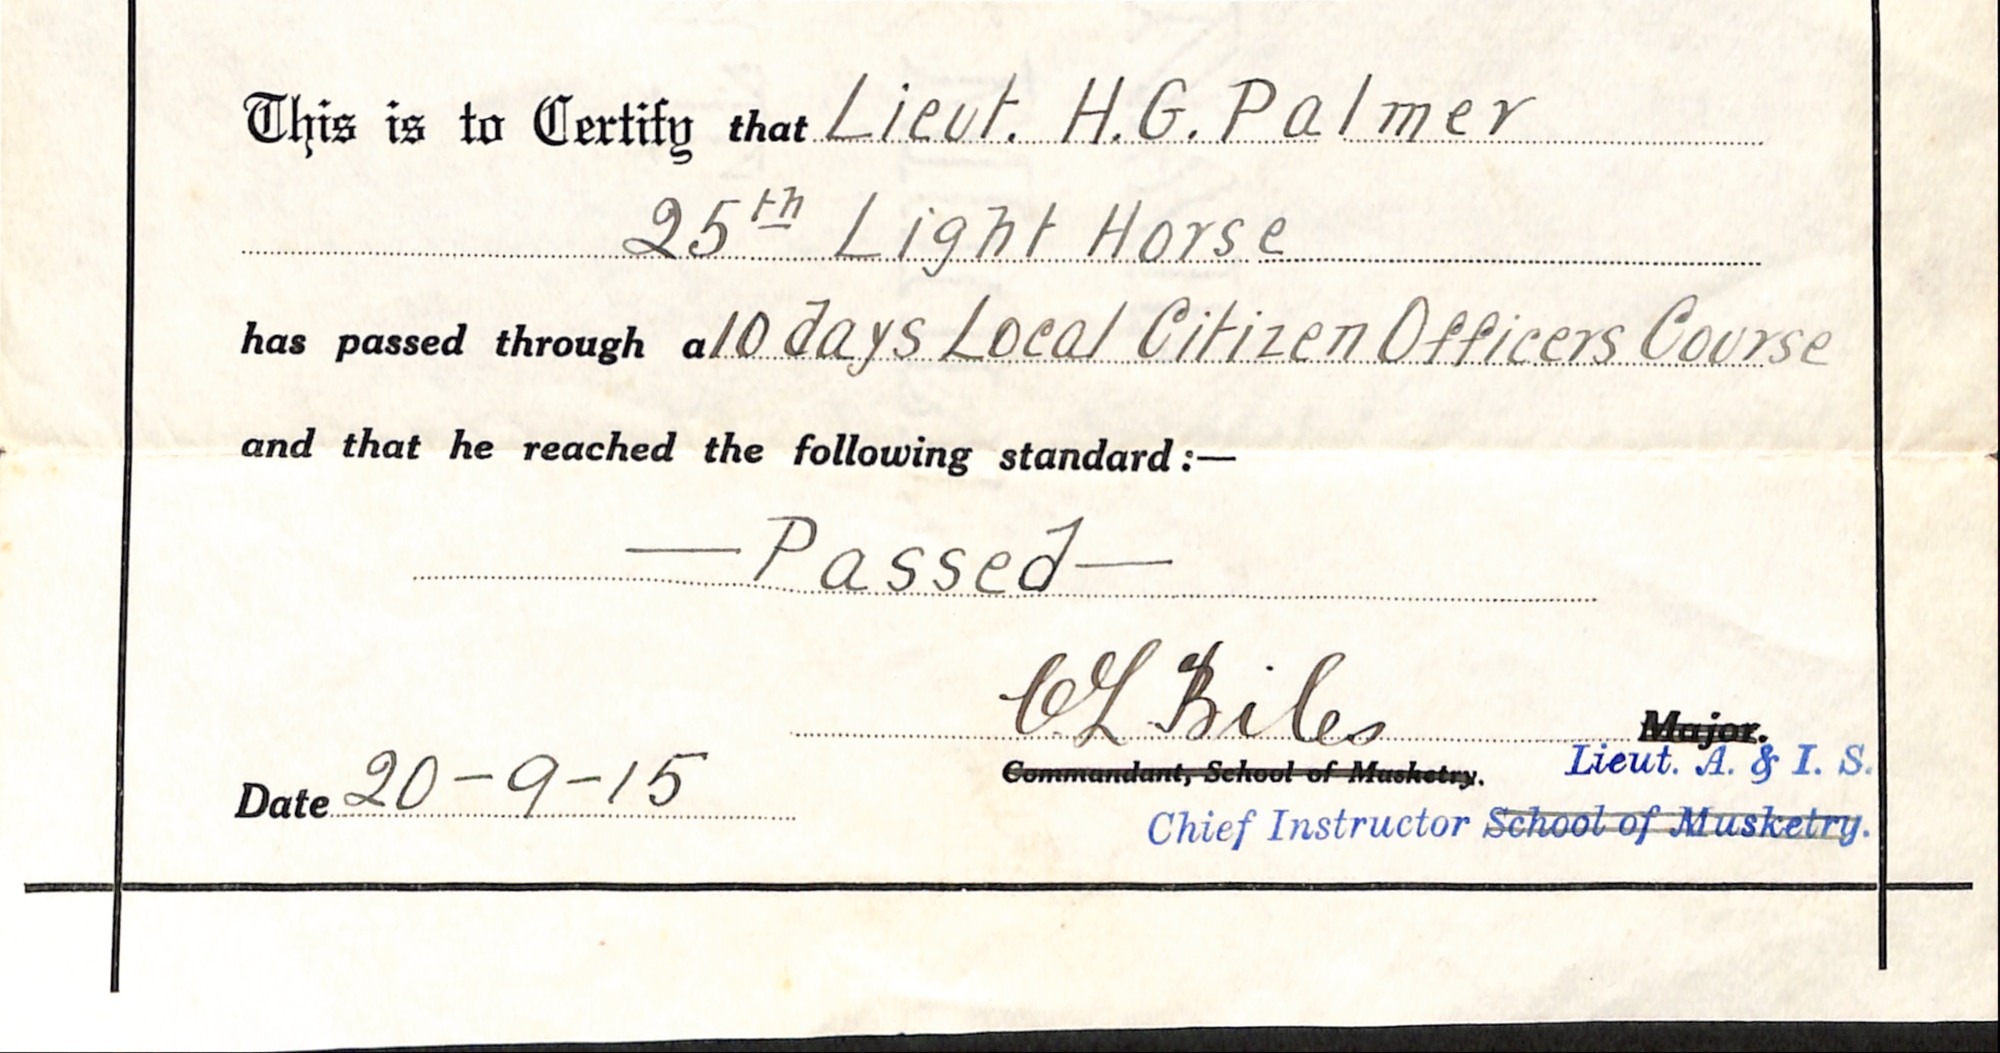 This is to Certify that Lieut. H.G. Palmer
25th Light Horse
has passed through a 10 days Local Citizen Officers Course
and that he reached the following standard:—
— Passed —
C L Biles Major.
Commandant, School of Musketry. Lieut. A. & I. S.
Date 20-9-15
Chief Instructor School of Musketry.